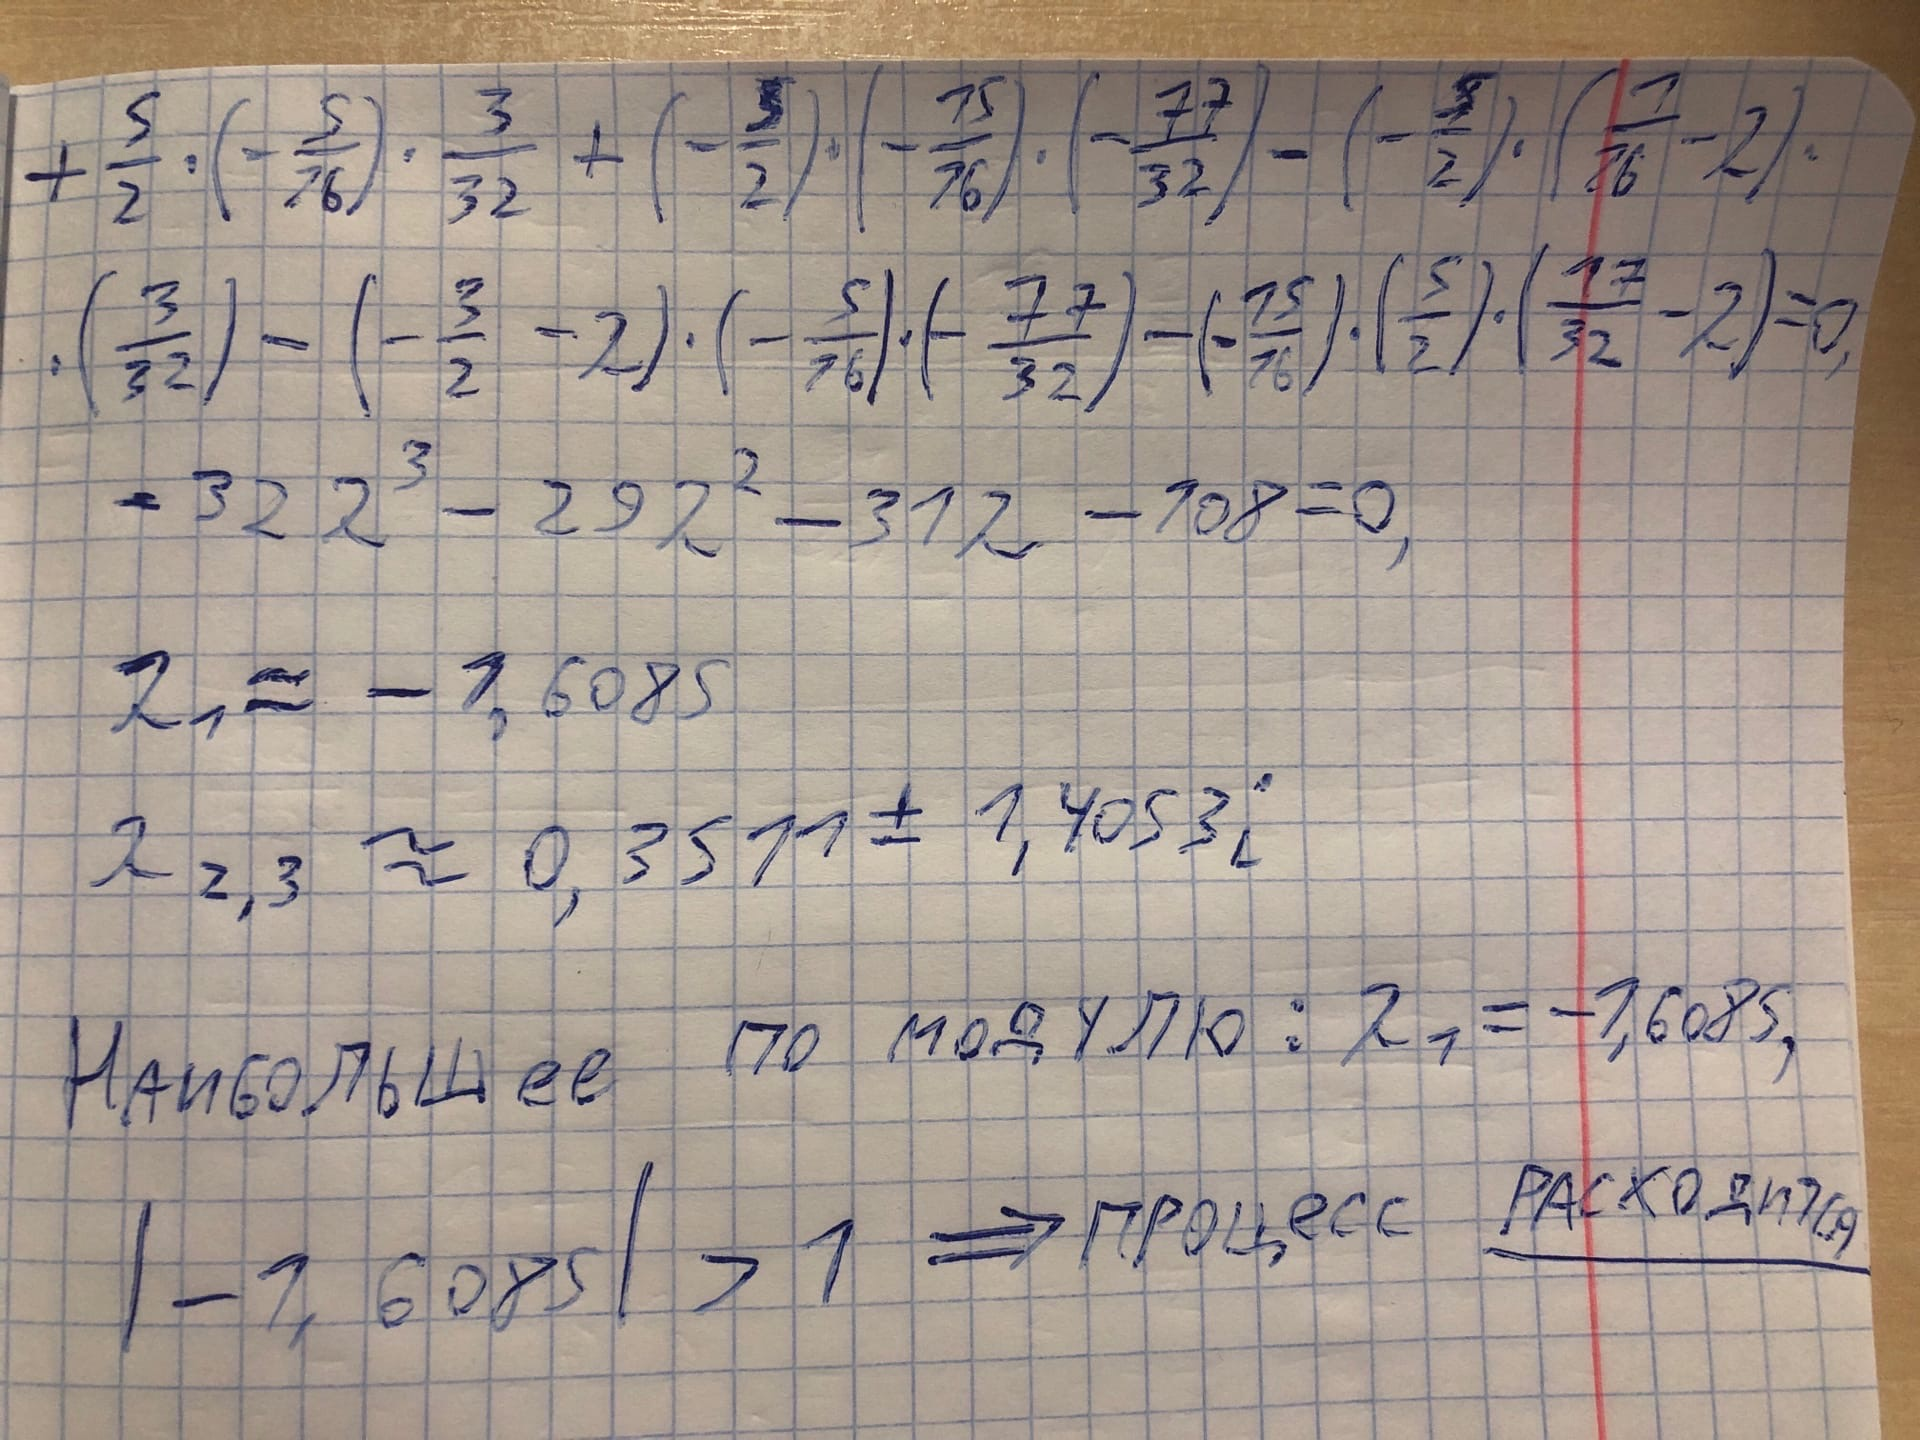 + 5/2 · (- 5/16) · 3/32 + (- 5/2) · (- 15/16) · (- 77/32) - (- 5/2) · (1/16 - λ) ·
· (3/32) - (- 3/2 - λ) · (- 5/16) · (- 77/32) - (- 15/16) · (5/2) · (17/32 - λ) = 0,
- 32λ³ - 29λ² - 31λ - 108 = 0,
λ₁ ≈ - 1,6085
λ₂,₃ ≈ 0,3511 ± 1,4053i
Наибольшее по модулю: λ₁ = -1,6085,
|-1,6085| > 1 ⇒ процесс расходится